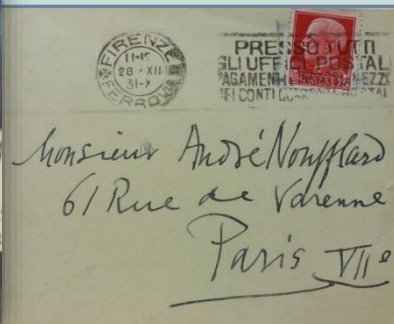 FIRENZE
11-15
28 · XII
31-X
FERROVIA
PRESSO TUTTI
GLI UFFICI POSTAL
PAGAMENTI
MEZZO
EI CONTI CORRENTI POSTAL
Monsieur André Noufflard
61 Rue de Varenne
Paris VIIe